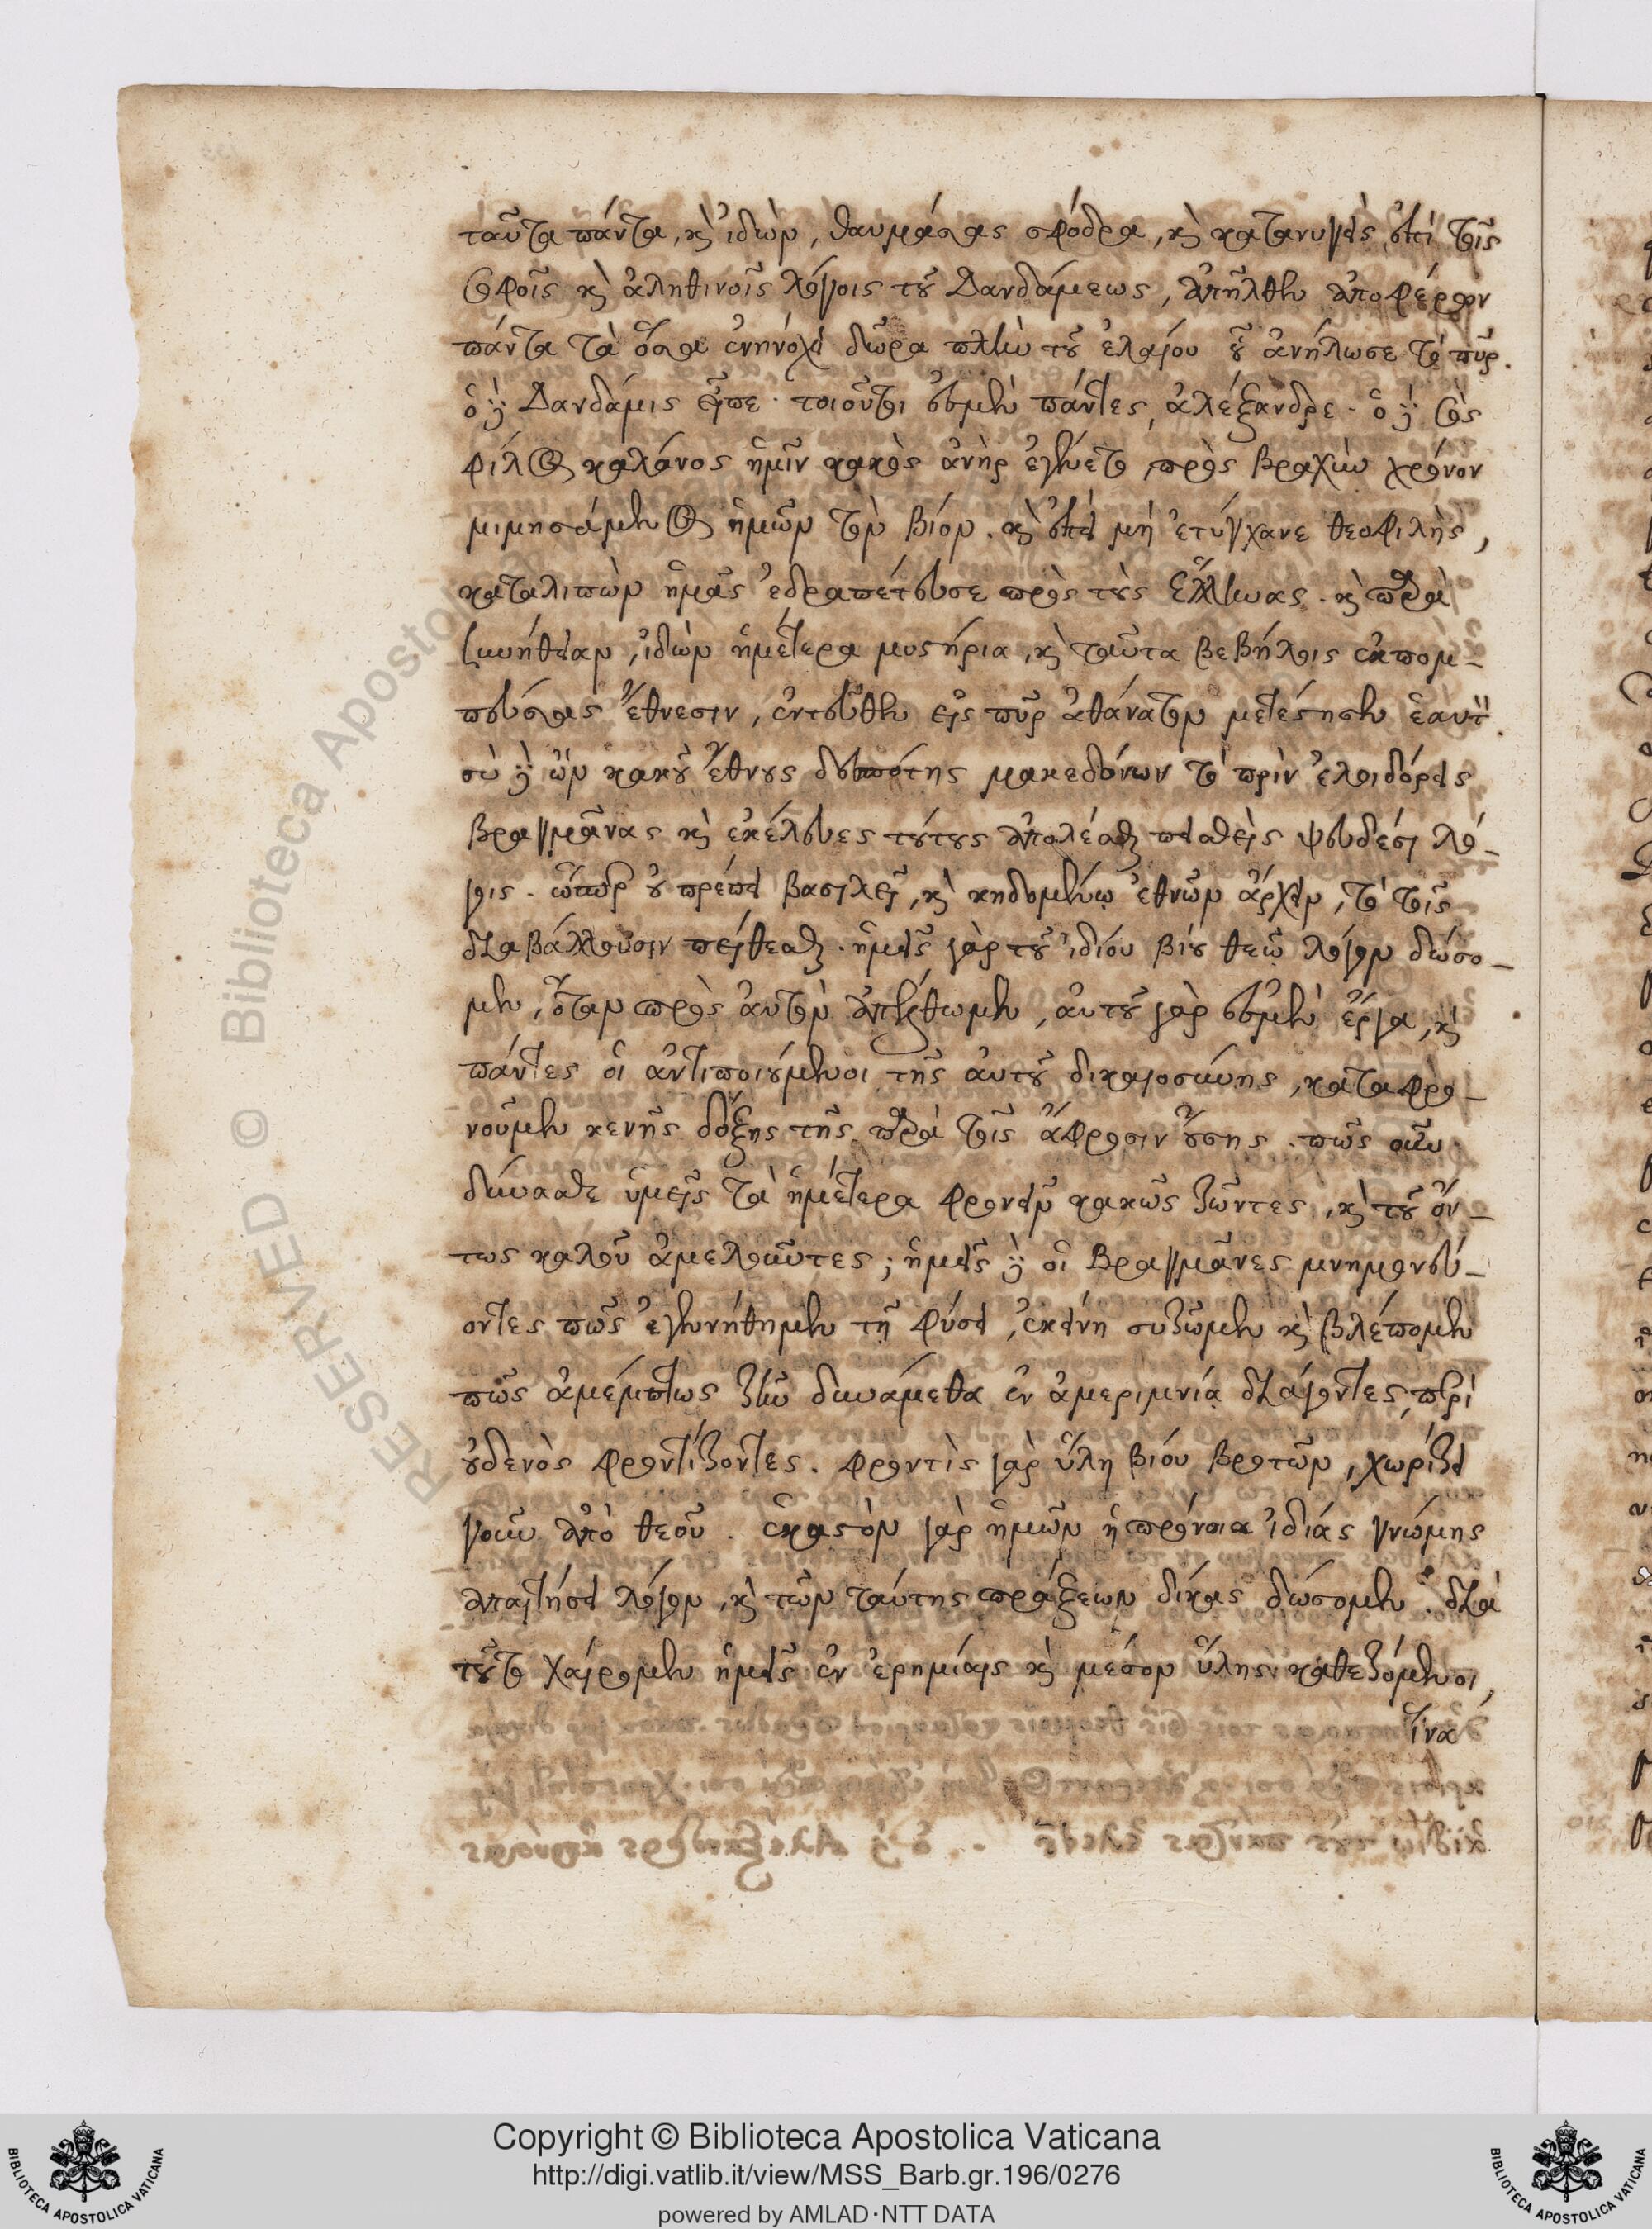 ταῦτα πάντα, κὶ ἰδὼν, θαυμάσας σφόδρα, κὶ κατανυγεὶς ἐπὶ τοῖς
σοφοῖς κὶ ἀληθινοῖς λόγοις τοῦ Δανδάμεως, ἀπῆλθεν ἀποφέρων
πάντα τὰ ὅσα ἐνηνόχει δῶρα πλὴν τοῦ ἐλαίου οὗ ἀνήλωσε τὸ πῦρ.
ὁ δὲ Δανδάμις εἶπε· τοιοῦτοι ἐσμὲν πάντες, ἀλέξανδρε· ὁ δὲ σὸς
φίλος καλάνος ἡμῖν κακὸς ἀνὴρ ἐγένετο πρὸς βραχὺν χρόνον
μιμησάμενος ἡμῶν τὸν βίον. κὶ ἐπεὶ μὴ ἐτύγχανε θεοφιλὴς,
καταλιπὼν ἡμᾶς ἐδραπέτευσε πρὸς τοὺς ἕλληνας. κὶ παρὰ
συνήθειαν, ἰδὼν ἡμέτερα μυστήρια, κὶ ταῦτα βεβήλοις ἐκπομ-
πεύσας ἔθνεσιν, ἐντεῦθεν εἰς πῦρ ἀθάνατον μετέστησεν ἑαυτὸν.
σὺ δὲ ὢν κακοῦ ἔθνους δεσπότης μακεδόνων τὸ πρὶν ἐλοιδόρεις
βραγμᾶνας κὶ ἐκέλευες τούτους ἀπολέσθαι πεισθεὶς ψευδέσι λό-
γοις. ὥσπερ οὐ πρέπει βασιλεῖ, κὶ κηδομένῳ ἐθνῶν ἄρχειν, τὸ τοῖς
διαβάλλουσιν πείθεσθαι. ἡμεῖς γὰρ τοῦ ἰδίου βίου θεῷ λόγον δώσο-
μεν, ὅταν πρὸς αὐτὸν ἀπέλθωμεν, αὐτοῦ γὰρ ἐσμὲν ἔργα, κὶ
πάντες οἱ ἀντιποιούμενοι τῆς αὐτοῦ δικαιοσύνης, καταφρο-
νοῦμεν κενῆς δόξης τῆς παρὰ τοῖς ἄφροσιν οὔσης. πῶς οὖν
δύνασθε ὑμεῖς τὰ ἡμέτερα φρονεῖν κακῶς ζῶντες, κὶ τοῦ ὄν-
τως καλοῦ ἀμελοῦντες; ἡμεῖς δὲ οἱ Βραγμᾶνες μνημονεύ-
οντες πῶς ἐγεννήθημεν τῇ φύσει, ἐκείνῃ συζῶμεν κὶ βλέπομεν
πῶς ἀμέμπτως ζῆν δυνάμεθα ἐν ἀμεριμνίᾳ διάγοντες, περὶ
οὐδενὸς φροντίζοντες. φροντὶς γὰρ ὕλη βίου βροτῶν, χωρίζει
γοῦν ἀπὸ θεοῦ. ἕκαστον γὰρ ἡμῶν ἡ πρόνοια ἰδίας γνώμης
ἀπαιτήσει λόγον, κὶ τῶν ταύτης πράξεων δίκας δώσομεν. διὰ
τοῦτο χαίρομεν ἡμεῖς ἐν ἐρημίαις κὶ μέσον ὕλης καθεζόμενοι,
ἵνα
RESERVED © Biblioteca Apostol
Copyright © Biblioteca Apostolica Vaticana
http://digi.vatlib.it/view/MSS_Barb.gr.196/0276
powered by AMLAD·NTT DATA
BIBLIOTECA APOSTOLICA VATICANA
BIBLIOTECA APOSTOLICA VATICANA